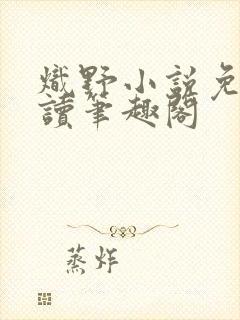 熾野小說免
讀筆趣閣
蒸炸